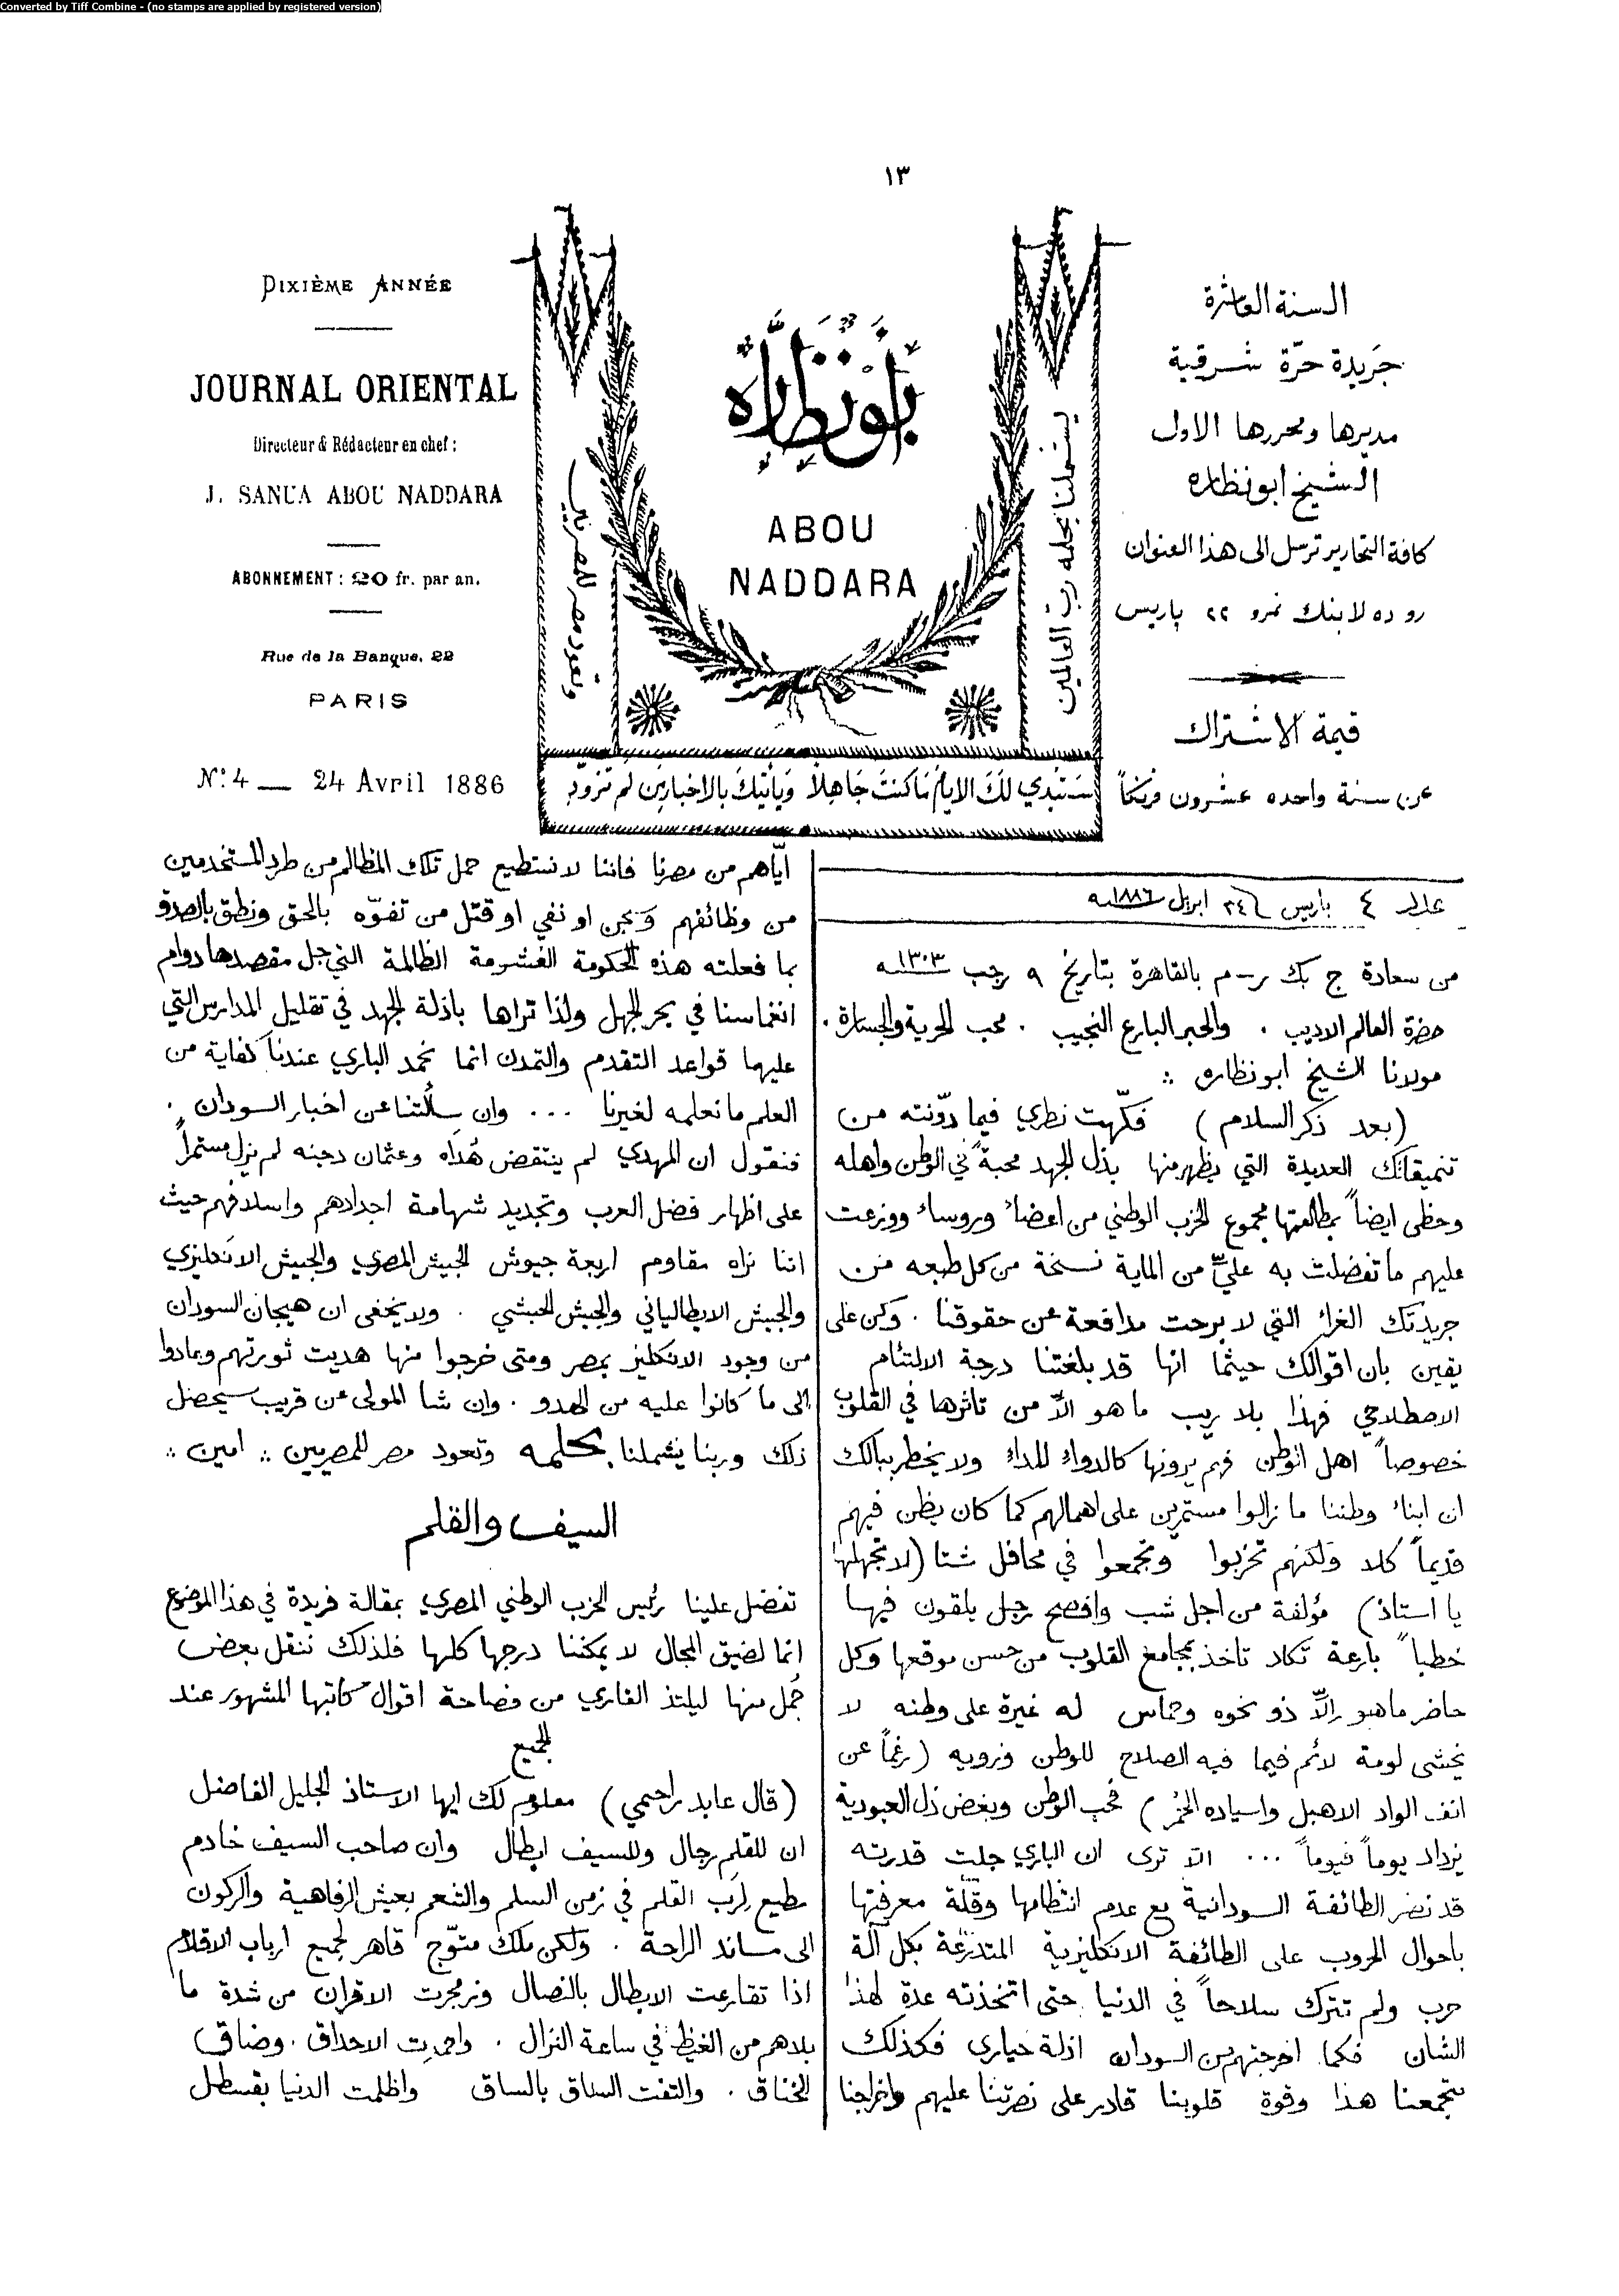 Converted by Tiff Combine - (no stamps are applied by registered version)
١٣
DIXIÈME ANNÉE
JOURNAL ORIENTAL
Directeur & Rédacteur en chef :
J. SANUA ABOU NADDARA
ABONNEMENT : 20 fr. par an.
Rue de la Banque, 22
PARIS
Nº: 4 — 24 Avril 1886
ابو نظاره
ABOU
NADDARA
يشملنا بحلمه رب العالمين
وتعود مصر للمصريين
ستبدي لك الايام ما كنت جاهلا وياتيك بالاخبار من لم تزود
السنة العاشرة
جريدة حرّة شرقية
مديرها ومحررها الاول
الشيخ ابو نظاره
كافة التحارير ترسل الى هذا العنوان
رو ده لا بنك نمرو ٢٢ پاريس
قيمة الاشتراك
عن سنة واحده عشرون فرنكاً
عدد ٤ باريس ٢٤ ابريل ١٨٨٦ سنه
من سعادة ج بك ر-م بالقاهرة بتاريخ ٩ رجب ١٣٠٣ سنه
حضرة العالم الاديب . والحبر البارع النجيب . محب الحرية والجسارة .
مولانا الشيخ ابو نظاره
(بعد ذكر السلام) فكّهت نظري فيما دوّنته من
تنميقاتك العديدة التي يظهر منها بذل الجهد محبةً في الوطن واهله
وحظى ايضاً بمطالعتها مجموع الحزب الوطني من اعضاء وروساء ووزعت
عليهم ما تفضلت به عليّ من الماية نسخة من كل طبعه من
جريدتك الغراء التي لا برحت مدافعة عن حقوقنا . وكن على
يقين بان اقوالك حيثما انها قد بلغتنا درجة الالتئام
الاصطلاحي فهذا بلا ريب ما هو الاّ من تاثرها في القلوب
خصوصاً اهل الوطن فهم يرونها كالدواء للداء ولا يخطر ببالك
ان ابناء وطننا ما زالوا مستمرين على اهمالهم كما كان يظن فيهم
قديماً كلا ولكنهم تحزبوا وتجمعوا في محافل شتا (لا تجهلها
يا استاذ) مؤلفة من اجل شب وافصح رجل يلقون فيها
خطباً بارعة تكاد تاخذ بمجامع القلوب من حسن موقعها وكل
حاضر ما هو الاّ ذو نخوه وحماس له غيرة على وطنه لا
يخشى لومة لائم فيما فيه الصلاح للوطن وذويه (رغماً عن
انف الواد الاهبل واسياده الحمر) فحب الوطن وبغض ذل العبودية
يزداد يوماً فيوماً ... الا ترى ان الباري جلت قدرته
قد نصر الطائفة السودانية مع عدم انتظامها وقلّة معرفتها
باحوال الحروب على الطائفة الانكليزية المتدرعة بكل آلة
حرب ولم تترك سلاحاً في الدنيا حتى اتخذته عدة لهذا
الشان فكما اخرجتهم من السودان اذلة حيارى فكذلك
تجمعنا هذا وقوة قلوبنا قادر على نصرتنا عليهم واخراجنا
ايّاهم من مصرنا فاننا لا نستطيع حمل تلك المظالم من طرد المستخدمين
من وظائفهم وسجن او نفي او قتل من تفوّه بالحق ونطق بالصدق
بما فعلته هذه الحكومة الغشومة الظالمة التي جل مقصدها دوام
انغماسنا في بحر الجهل ولذا تراها باذلة الجهد في تقليل المدارس التي
عليها قواعد التقدم والتمدن انما نحمد الباري عندنا كفاية من
العلم ما نعلمه لغيرنا ... وان سألتنا عن اخبار السودان .
فنقول ان المهدي لم ينتقض هُداه وعثمان دجنه لم يزل مستمراً
على اظهار فضل العرب وتجديد شهامة اجدادهم واسلافهم حيث
اننا نراه مقاوم اربعة جيوش الجيش المصري والجيش الانكليزي
والجيش الايطالياني والجيش الحبشي . ولا يخفى ان هيجان السودان
من وجود الانكليز بمصر ومتى خرجوا منها هديت ثورتهم وعادوا
الى ما كانوا عليه من الهدو . وان شا المولى عن قريب سيحصل
ذلك وربنا يشملنا بحلمه وتعود مصر للمصريين امين
السيف والقلم
تفضل علينا رئيس الحزب الوطني المصري بمقالة فريدة في هذا الموضوع
انما لضيق المجال لا يمكننا درجها كلها فلذلك ننقل بعض
جُمل منها ليلتذ القاري من فصاحة اقوال كاتبها المشهور عند
الجميع
(قال عابد راحمي) معلوم لك ايها الاستاذ الجليل الفاضل
ان للقلم رجال وللسيف ابطال وان صاحب السيف خادم
مطيع لرب القلم في زمن السلم والتنعم بعيش الرفاهية والركون
الى مساند الراحة . ولكن ملك متوّج قاهر لجميع ارباب الاقلام
اذا تقارعت الابطال بالنصال وزمجرت الاقران من شدة ما
بلاهم من الغيظ في ساعة النزال . واحمرت الاحداق . وضاق
الخناق . والتفت الساق بالساق واظلمت الدنيا بقسطل